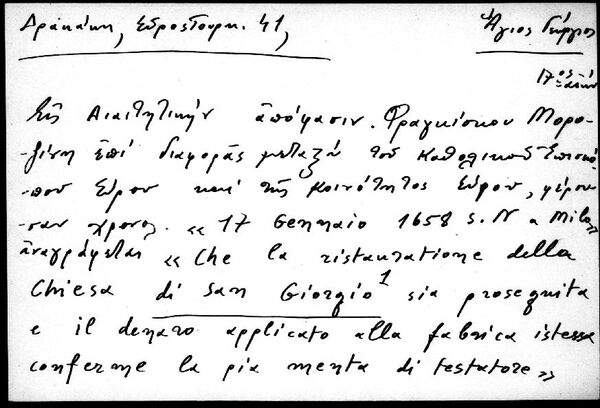 Δρακάκη, Σύρος Τουρκ. 41,
Ἅγιος Γεώργιος
17ος αἰών
Εἰς Διαιτητικὴν ἀπόφασιν Φραγκίσκου Μορο-
-ζίνη ἐπὶ διαφορᾶς μεταξὺ τοῦ Καθολικοῦ Ἐπισκό-
-που Σύρου καὶ τῆς Κοινότητος Σύρου, φέρου-
σαν χρονολ. « 17 Gennaio 1658 S. N a Milo»
ἀναγράφεται « Che la ristauratione della
Chiesa di San Giorgio 1 sia proseguita
e il denaro applicato alla fabrica istessa
conferme la pia menta di testatore »